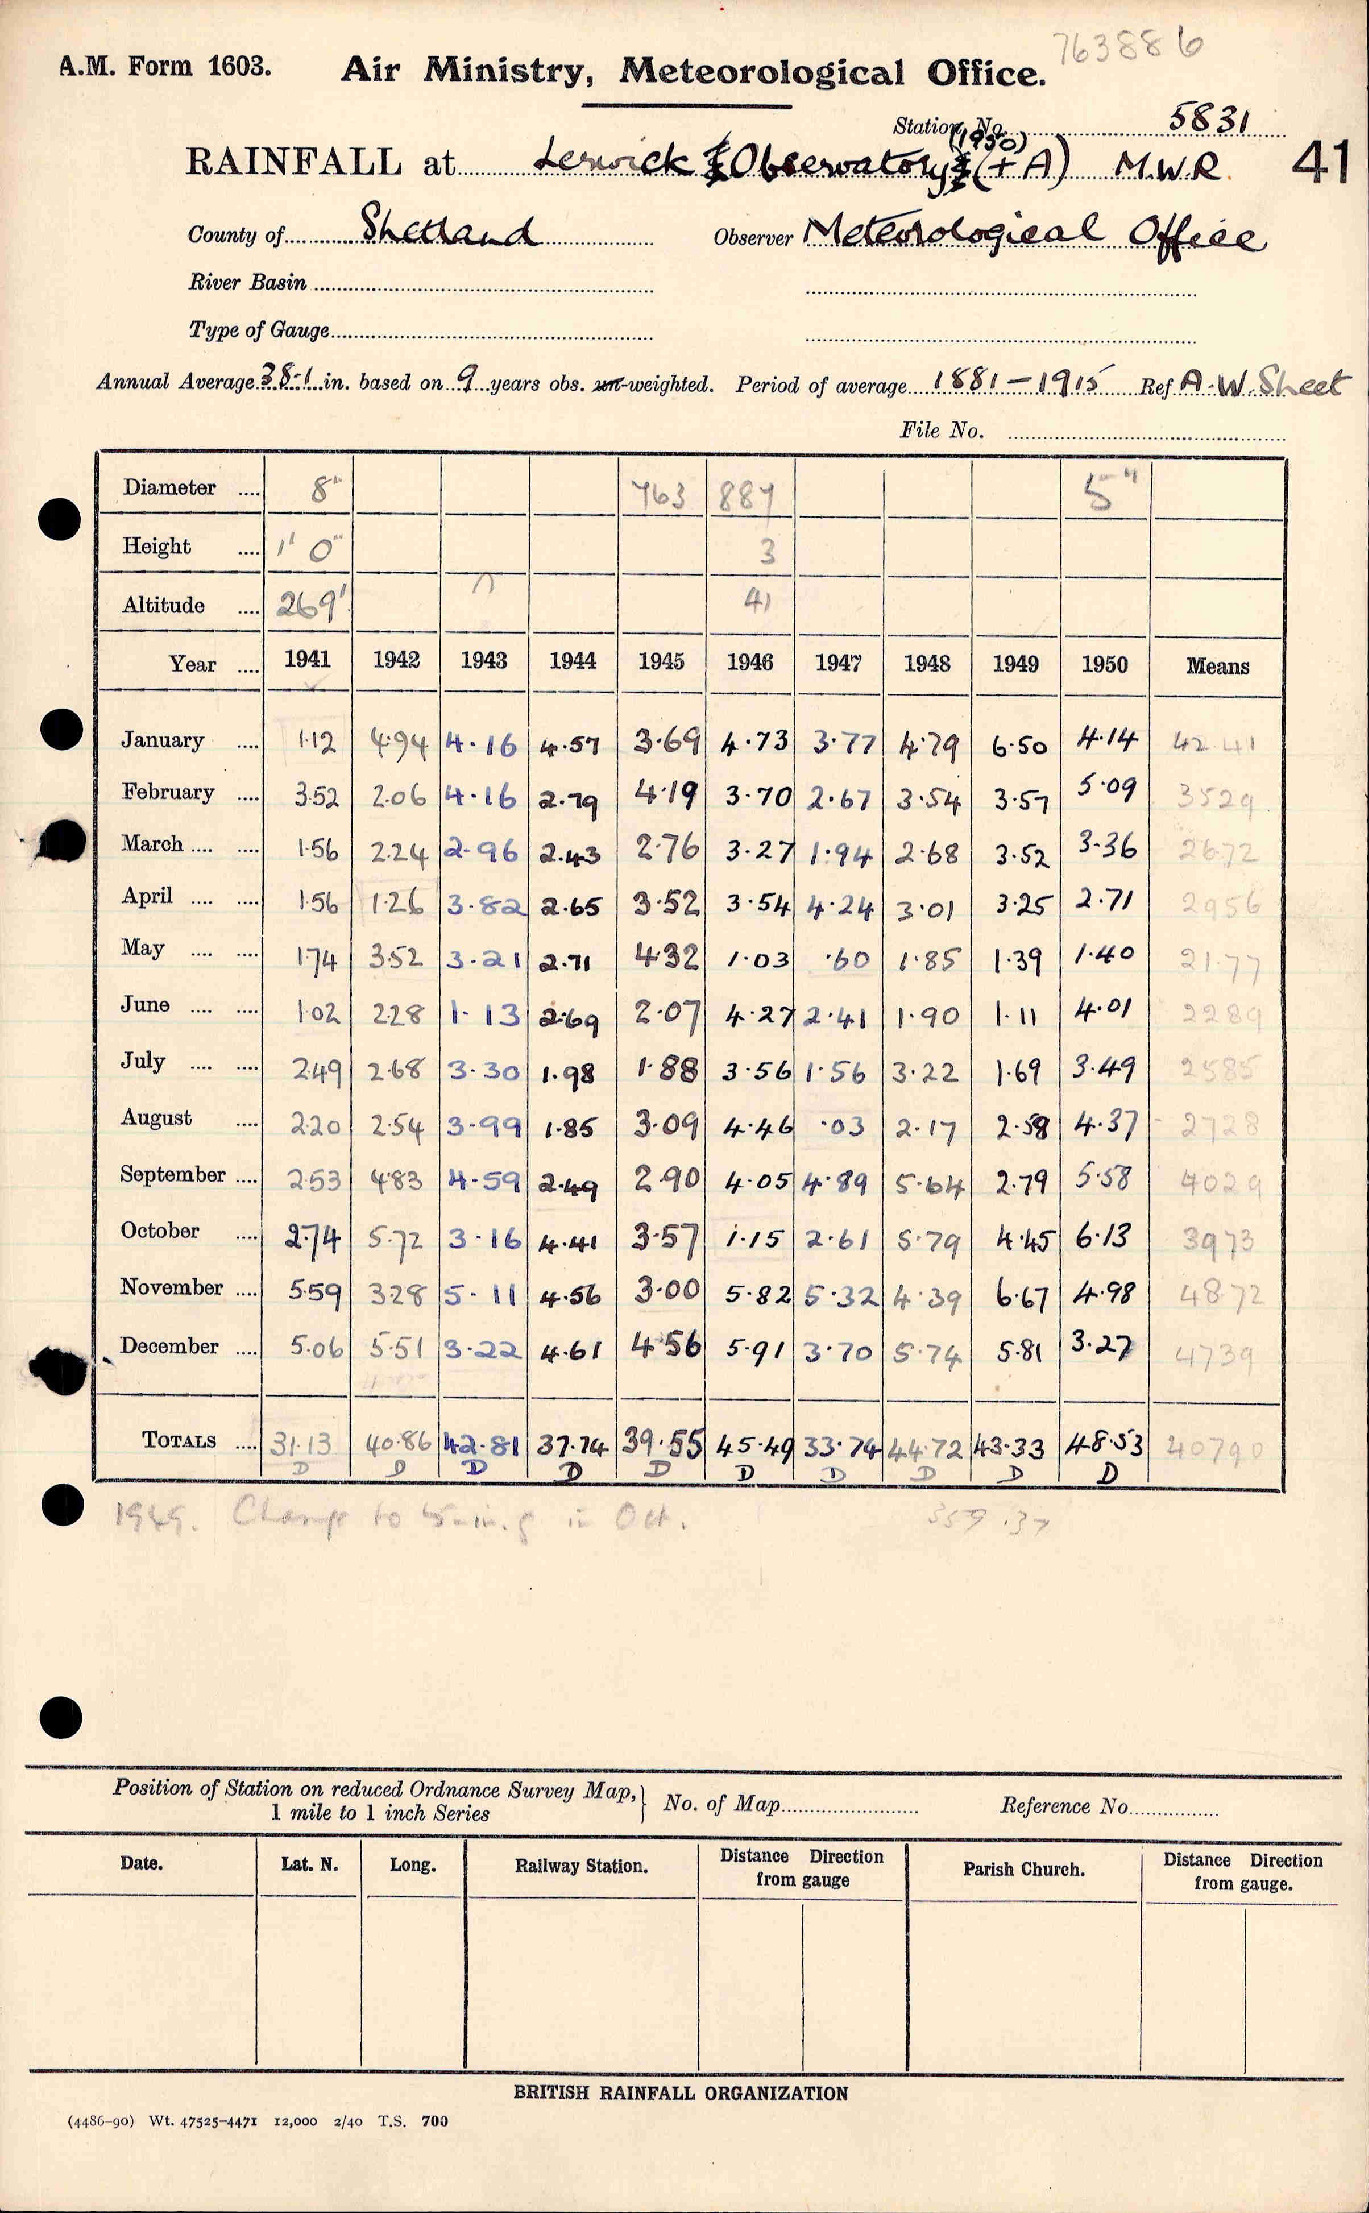 763886
A.M. Form 1603. Air Ministry, Meteorological Office.
Station No. 5831
(1950)
RAINFALL at Lerwick Observatory (+ A) M.W.R. 41
County of Shetland Observer Meteorological Office
River Basin
Type of Gauge
Annual Average 38.1 in. based on 9 years obs. un-weighted. Period of average 1881-1915 Ref A.W. Sheet
File No.
Diameter .... 8" 763 887 5"
Height .... 1' 0" 3
Altitude .... 269' 41
Year .... 1941 1942 1943 1944 1945 1946 1947 1948 1949 1950 Means
January .... 1.12 4.94 4.16 4.57 3.69 4.73 3.77 4.79 6.50 4.14 42.41
February .... 3.52 2.06 4.16 2.79 4.19 3.70 2.67 3.54 3.57 5.09 3529
March .... .... 1.56 2.24 2.96 2.43 2.76 3.27 1.94 2.68 3.52 3.36 2672
April .... .... 1.56 1.26 3.82 2.65 3.52 3.54 4.24 3.01 3.25 2.71 2956
May .... .... 1.74 3.52 3.21 2.71 4.32 1.03 .60 1.85 1.39 1.40 21.77
June .... .... 1.02 2.28 1.13 2.69 2.07 4.27 2.41 1.90 1.11 4.01 2289
July .... .... 2.49 2.68 3.30 1.98 1.88 3.56 1.56 3.22 1.69 3.49 2585
August .... 2.20 2.54 3.99 1.85 3.09 4.46 .03 2.17 2.58 4.37 2728
September .... 2.53 4.83 4.59 2.49 2.90 4.05 4.89 5.64 2.79 5.58 4029
October .... 2.74 5.72 3.16 4.41 3.57 1.15 2.61 5.79 4.45 6.13 3973
November .... 5.59 3.28 5.11 4.56 3.00 5.82 5.32 4.39 6.67 4.98 4872
December .... 5.06 5.51 3.22 4.61 4.56 5.91 3.70 5.74 5.81 3.27 4739
TOTALS .... 31.13 40.86 42.81 37.74 39.55 45.49 33.74 44.72 43.33 48.53 40790
D D D D D D D D D D
1949. Change to 5 in. g in Oct. 359.37
Position of Station on reduced Ordnance Survey Map, 1 mile to 1 inch Series } No. of Map Reference No.
Date. Lat. N. Long. Railway Station. Distance Direction from gauge Parish Church. Distance Direction from gauge.
BRITISH RAINFALL ORGANIZATION
(4486-90) Wt. 47525-4471 12,000 2/40 T.S. 700